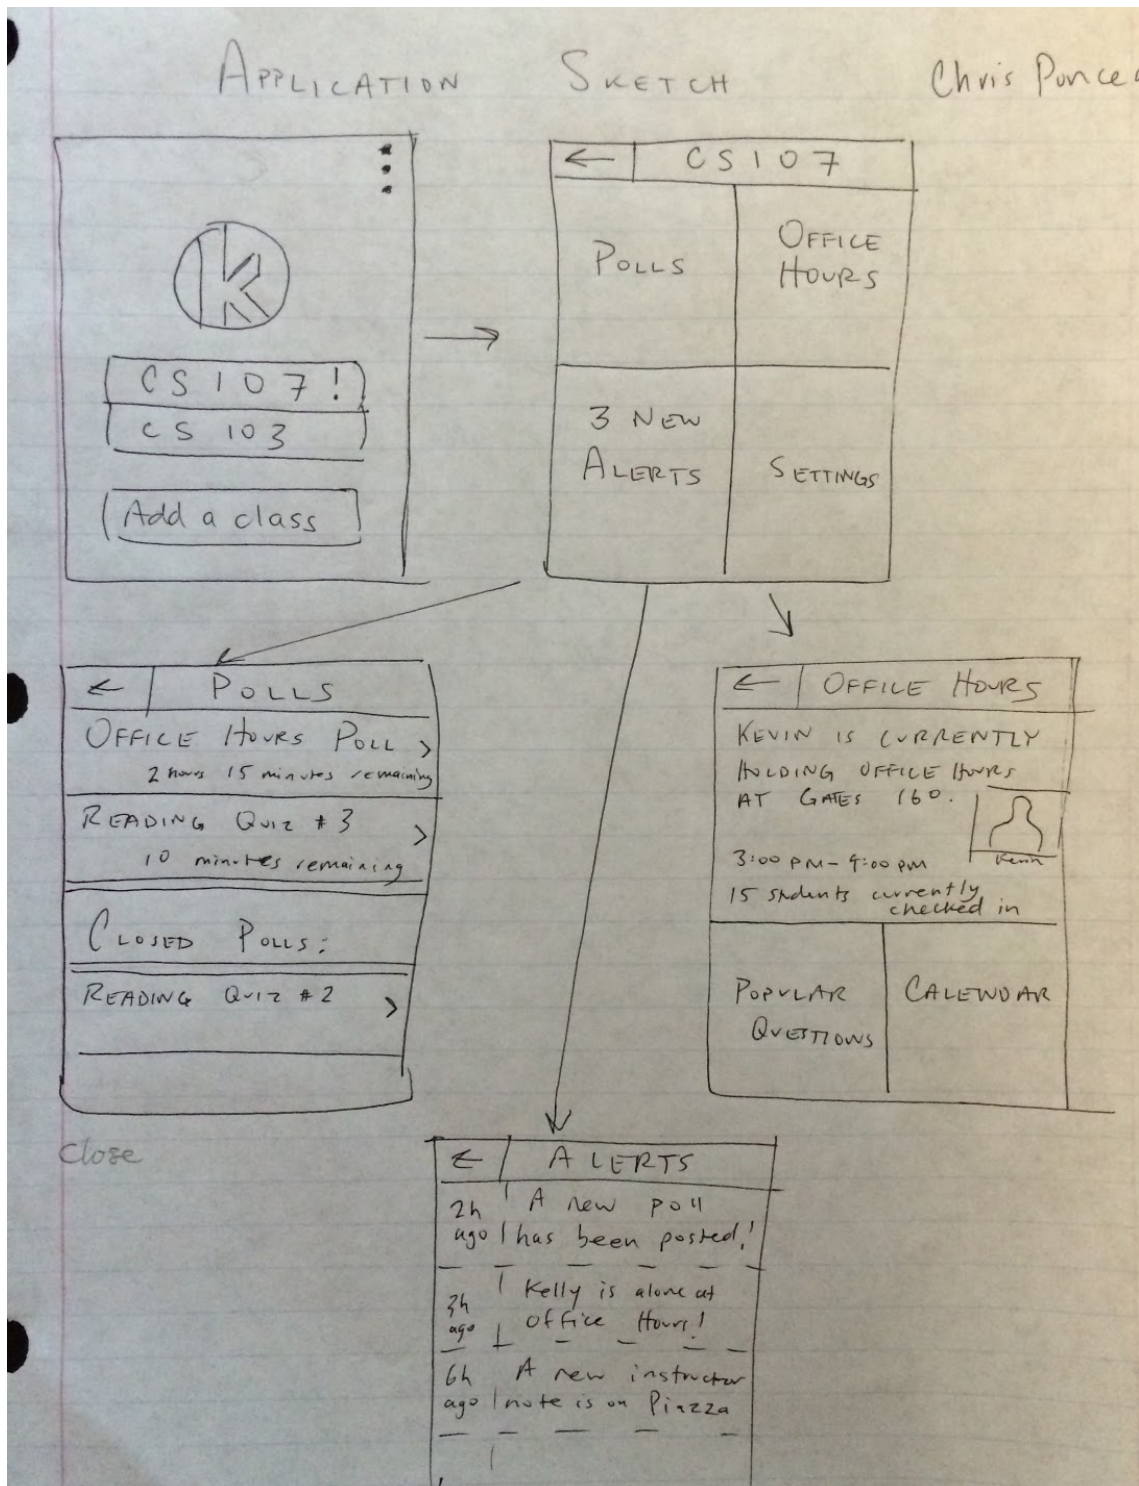 APPLICATION SKETCH
Chris Ponce
k
CS107!
CS 103
Add a class
← CS107
POLLS
OFFICE
HOURS
3 NEW
ALERTS
SETTINGS
← POLLS
OFFICE HOURS POLL >
2 hours 15 minutes remaining
READING QUIZ #3 >
10 minutes remaining
CLOSED POLLS:
READING QUIZ #2 >
Close
← OFFICE HOURS
KEVIN IS CURRENTLY
HOLDING OFFICE HOURS
AT GATES 160.
Kevin
3:00 PM - 4:00 PM
15 students currently
checked in
POPULAR
QUESTIONS
CALENDAR
← ALERTS
2h
ago
A new poll
has been posted!
ago
Kelly is alone at
Office Hours!
6h
ago
A new instructor
note is on Piazza